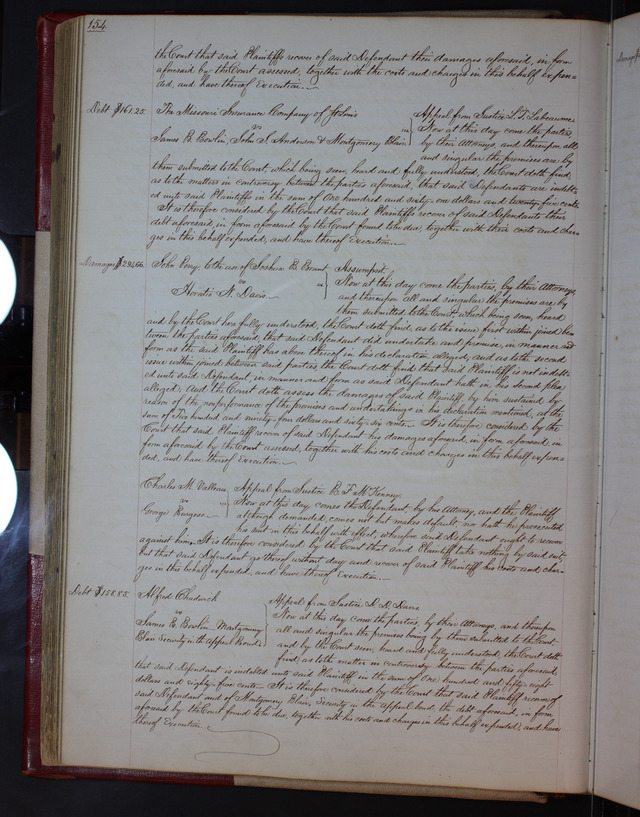 154
the Court that said Plaintiffs recover of said Defendant their damages aforesaid, in form
aforesaid by the Court assessed, together with the costs and charges in this behalf expen-
ded, and have thereof Execution.
Debt $161.25 The Missouri Insurance Company of St Louis
vs
James B. Bowlin, John S. Anderson & Montgomery Blair
Appeal from Justice L. T. Labeaume
Now at this day come the parties,
by their Attorneys, and thereupon all
and singular the premises are by
them submitted to the Court, which being seen, heard and fully understood, the Court doth find,
as to the matters in controversy between the parties aforesaid, that said Defendants are indebt-
ed unto said Plaintiffs in the sum of One hundred and sixty-one dollars and twenty-five cents.
It is therefore considered by the Court that said Plaintiffs recover of said Defendants their
debt aforesaid, in form aforesaid by the Court found to be due, together with their costs and char-
ges in this behalf expended, and have thereof Execution.
Damages $294.66 John Perry to the use of Joshua B. Brant
vs
Horatio N. Davis
Assumpsit.
Now at this day come the parties, by their Attorneys,
and thereupon all and singular the premises are by
them submitted to the Court which being seen, heard
and by the Court here fully understood, the Court doth find, as to the issue first within joined be-
tween the parties aforesaid, that said Defendant did undertake and promise, in manner and
form as the said Plaintiff has above thereof in his declaration alleged, and as to the second
issue within joined between said parties, the Court doth find that said Plaintiff is not indebt-
ed unto said Defendant, in manner and form as said Defendant hath in his second plea
alleged: And the Court doth assess the damages of said Plaintiff by him sustained by
reason of the nonperformance of the promises and undertakings in his declaration mentioned, at the
sum of Two hundred and ninety-four dollars and sixty-six cents. It is therefore considered by the
Court that said Plaintiff recover of said Defendant his damages aforesaid, in form aforesaid, in
form aforesaid by the Court assessed, together with his costs and charges in this behalf expen-
ded, and have thereof Execution.
Charles M. Valleau
vs
George Burgess
Appeal from Justice B. F. McKenney.
Now at this day comes the Defendant by his Attorney, and the Plaintiff,
although demanded, comes not but makes default, nor hath he prosecuted
his suit in this behalf with effect, wherefore said Defendant ought to recover
against him. It is therefore considered by the Court that said Plaintiff take nothing by said suit,
but that said Defendant go thereof without day and recover of said Plaintiff his costs and char-
ges in this behalf expended, and have thereof Execution.
Debt $158.85 Alfred Chadwick
vs
James B. Bowlin, Montgomery
Blair Security in the appeal Bond
Appeal from Justice N. N. Davis
Now at this day come the parties, by their Attorneys, and thereupon
all and singular the premises being by them submitted to the Court
and by the Court seen, heard and fully understood, the Court doth
find, as to the matter in controversy between the parties aforesaid,
that said Defendant is indebted unto said Plaintiff in the sum of One hundred and fifty-eight
dollars and eighty-five cents. It is therefore considered by the Court that said Plaintiff recover of
said Defendant and of Montgomery Blair, Security in the appeal bond, the debt aforesaid, in form
aforesaid by the Court found to be due, together with his costs and charges in this behalf expended, and have
thereof Execution.